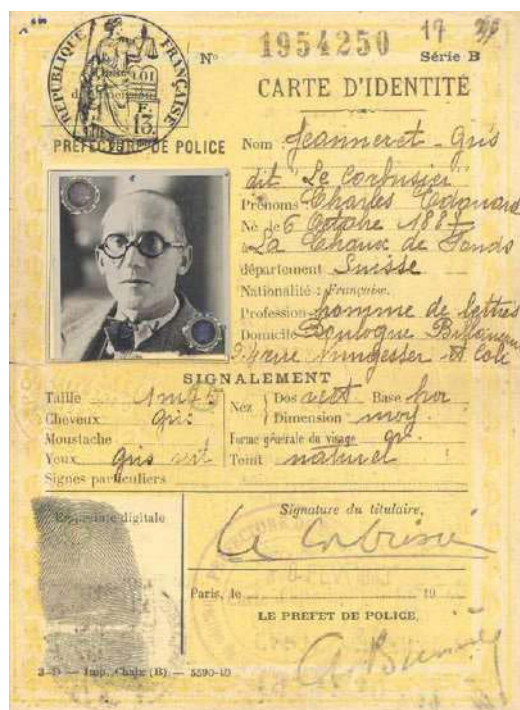 RÉPUBLIQUE FRANÇAISE
LOI
F.
13.
N° 1954250 17
Série B
CARTE D'IDENTITÉ
PRÉFECTURE DE POLICE
Nom Jeanneret-Gris
dit Le Corbusier
Prénoms Charles Edouard
Né le 6 Octobre 1887
à La Chaux de Fonds
département Suisse
Nationalité : Française.
Profession homme de lettres
Domicile Boulogne
rue Nungesser et Coli
SIGNALEMENT
Taille 1m75
Cheveux gris
Moustache
Yeux gris vert
Signes particuliers
Nez Dos rect Base hor
Dimension moy
Forme générale du visage ov.
Teint naturel
Empreinte digitale
Signature du titulaire,
Le Corbusier
Paris, le 19
LE PRÉFET DE POLICE,
3-D — Imp. Chaix (B). — 5590-40